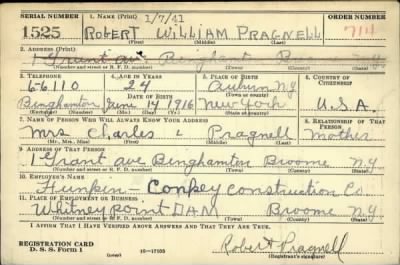 SERIAL NUMBER 1. NAME (Print) 1/7/41 ORDER NUMBER
1525 ROBERT WILLIAM PRAGNELL 714
(First) (Middle) (Last)
2. ADDRESS (Print)
1 Grant ave. Binghamton Broome N.Y.
(Number and street or R. F. D. number) (Town) (County) (State)
3. TELEPHONE 4. AGE IN YEARS 5. PLACE OF BIRTH 6. COUNTRY OF CITIZENSHIP
6-6110 24 Auburn N.Y.
DATE OF BIRTH
Binghamton June 14 1916 New York U.S.A.
(Exchange) (Number) (Mo.) (Day) (Yr.) (State or country)
7. NAME OF PERSON WHO WILL ALWAYS KNOW YOUR ADDRESS 8. RELATIONSHIP OF THAT PERSON
Mrs Charles L Pragnell Mother
(Mr., Mrs., Miss) (First) (Middle) (Last)
9. ADDRESS OF THAT PERSON
1 Grant ave Binghamton Broome N.Y.
(Number and street or R. F. D. number) (Town) (County) (State)
10. EMPLOYER'S NAME
Conpey Construction Co
11. PLACE OF EMPLOYMENT OR BUSINESS
Whitney point DAM Broome N.Y.
(Number and street or R. F. D. number) (Town) (County) (State)
I AFFIRM THAT I HAVE VERIFIED ABOVE ANSWERS AND THAT THEY ARE TRUE.
REGISTRATION CARD
D. S. S. FORM 1 16—17105 Robert Pragnell
(over) (Registrant's signature)